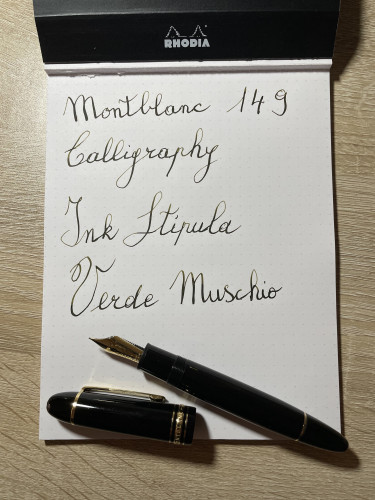 RHODIA
Montblanc 149
Calligraphy
Ink Stipula
Verde Muschio